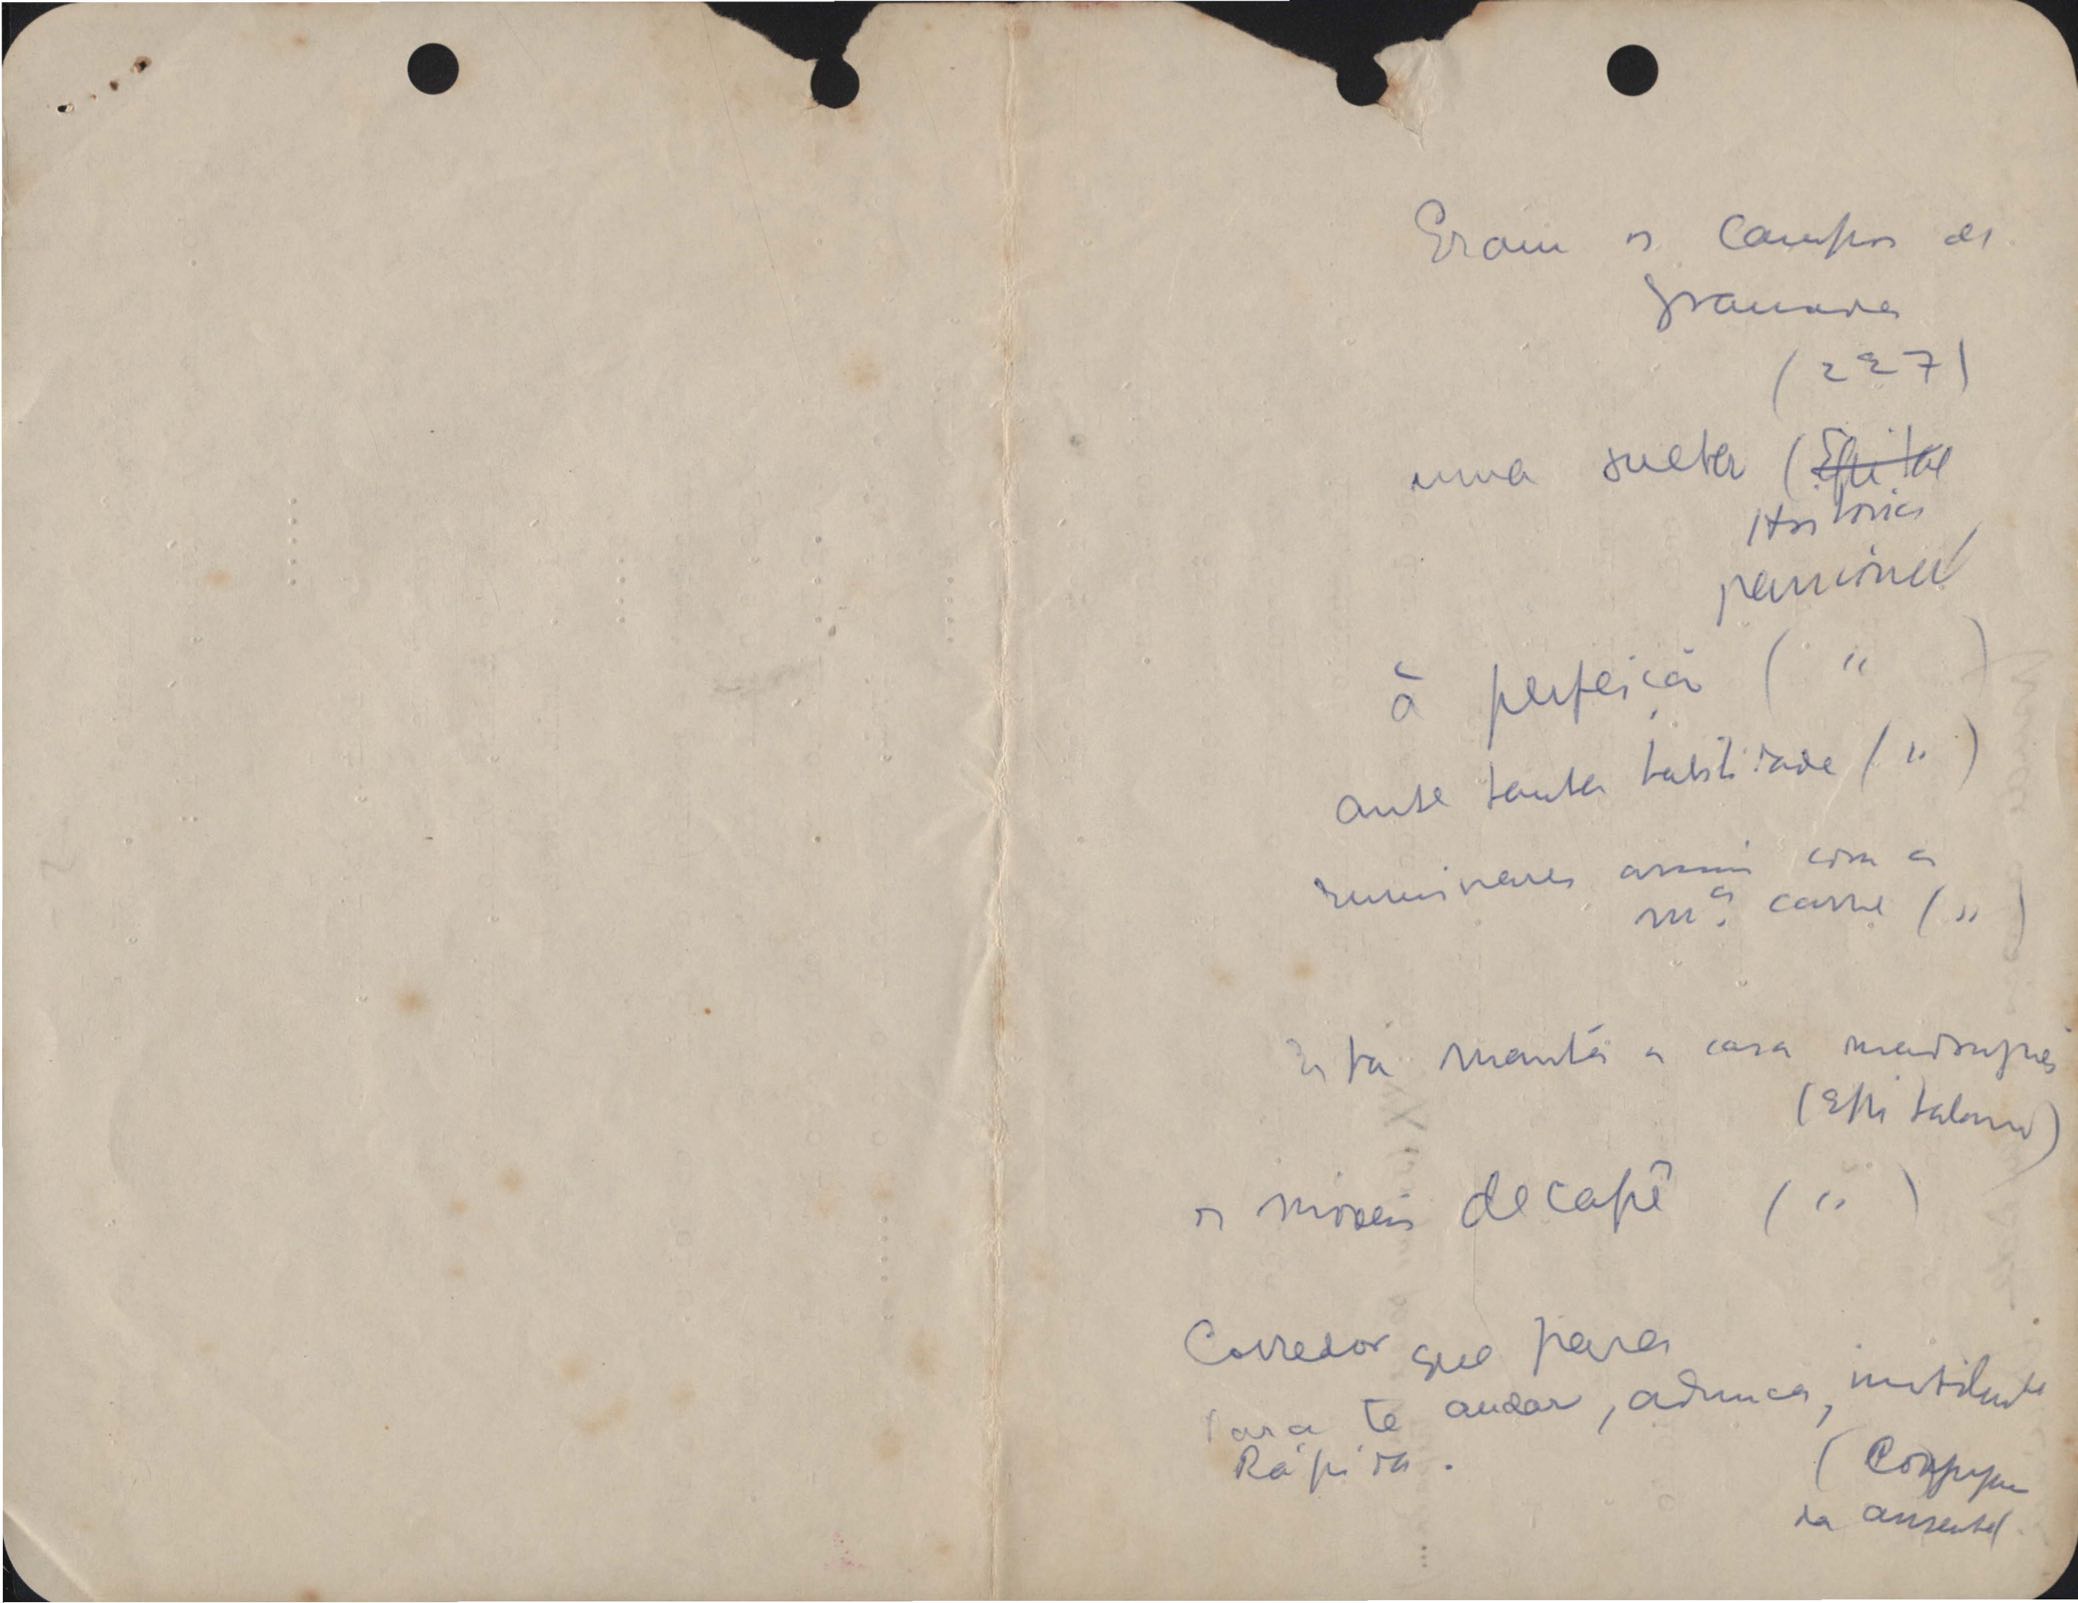 Eram os campos de
Granada
(227)
uma sueter (Epital
História
passional
à perfeição ( " )
ante tanta habilidade ( " )
ruminares assim com a
mª. carne ( " )
Esta mantá a casa
(Epitalamio)
os móveis decapê ( " )
Corredor que paras
Para te andar, adunca, inutilmente
Rápida.
da ausente)